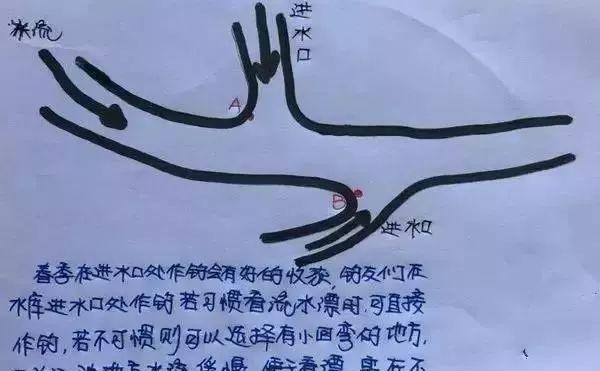 水流
进水口
A
B
进水口
春季在进水口处作钓会有好的收获,钓友们在
水库进水口处作钓若习惯看流水漂时,可直接
作钓,若不习惯则可以选择有小回弯的地方,
水流 缓慢 便于看漂 实在不